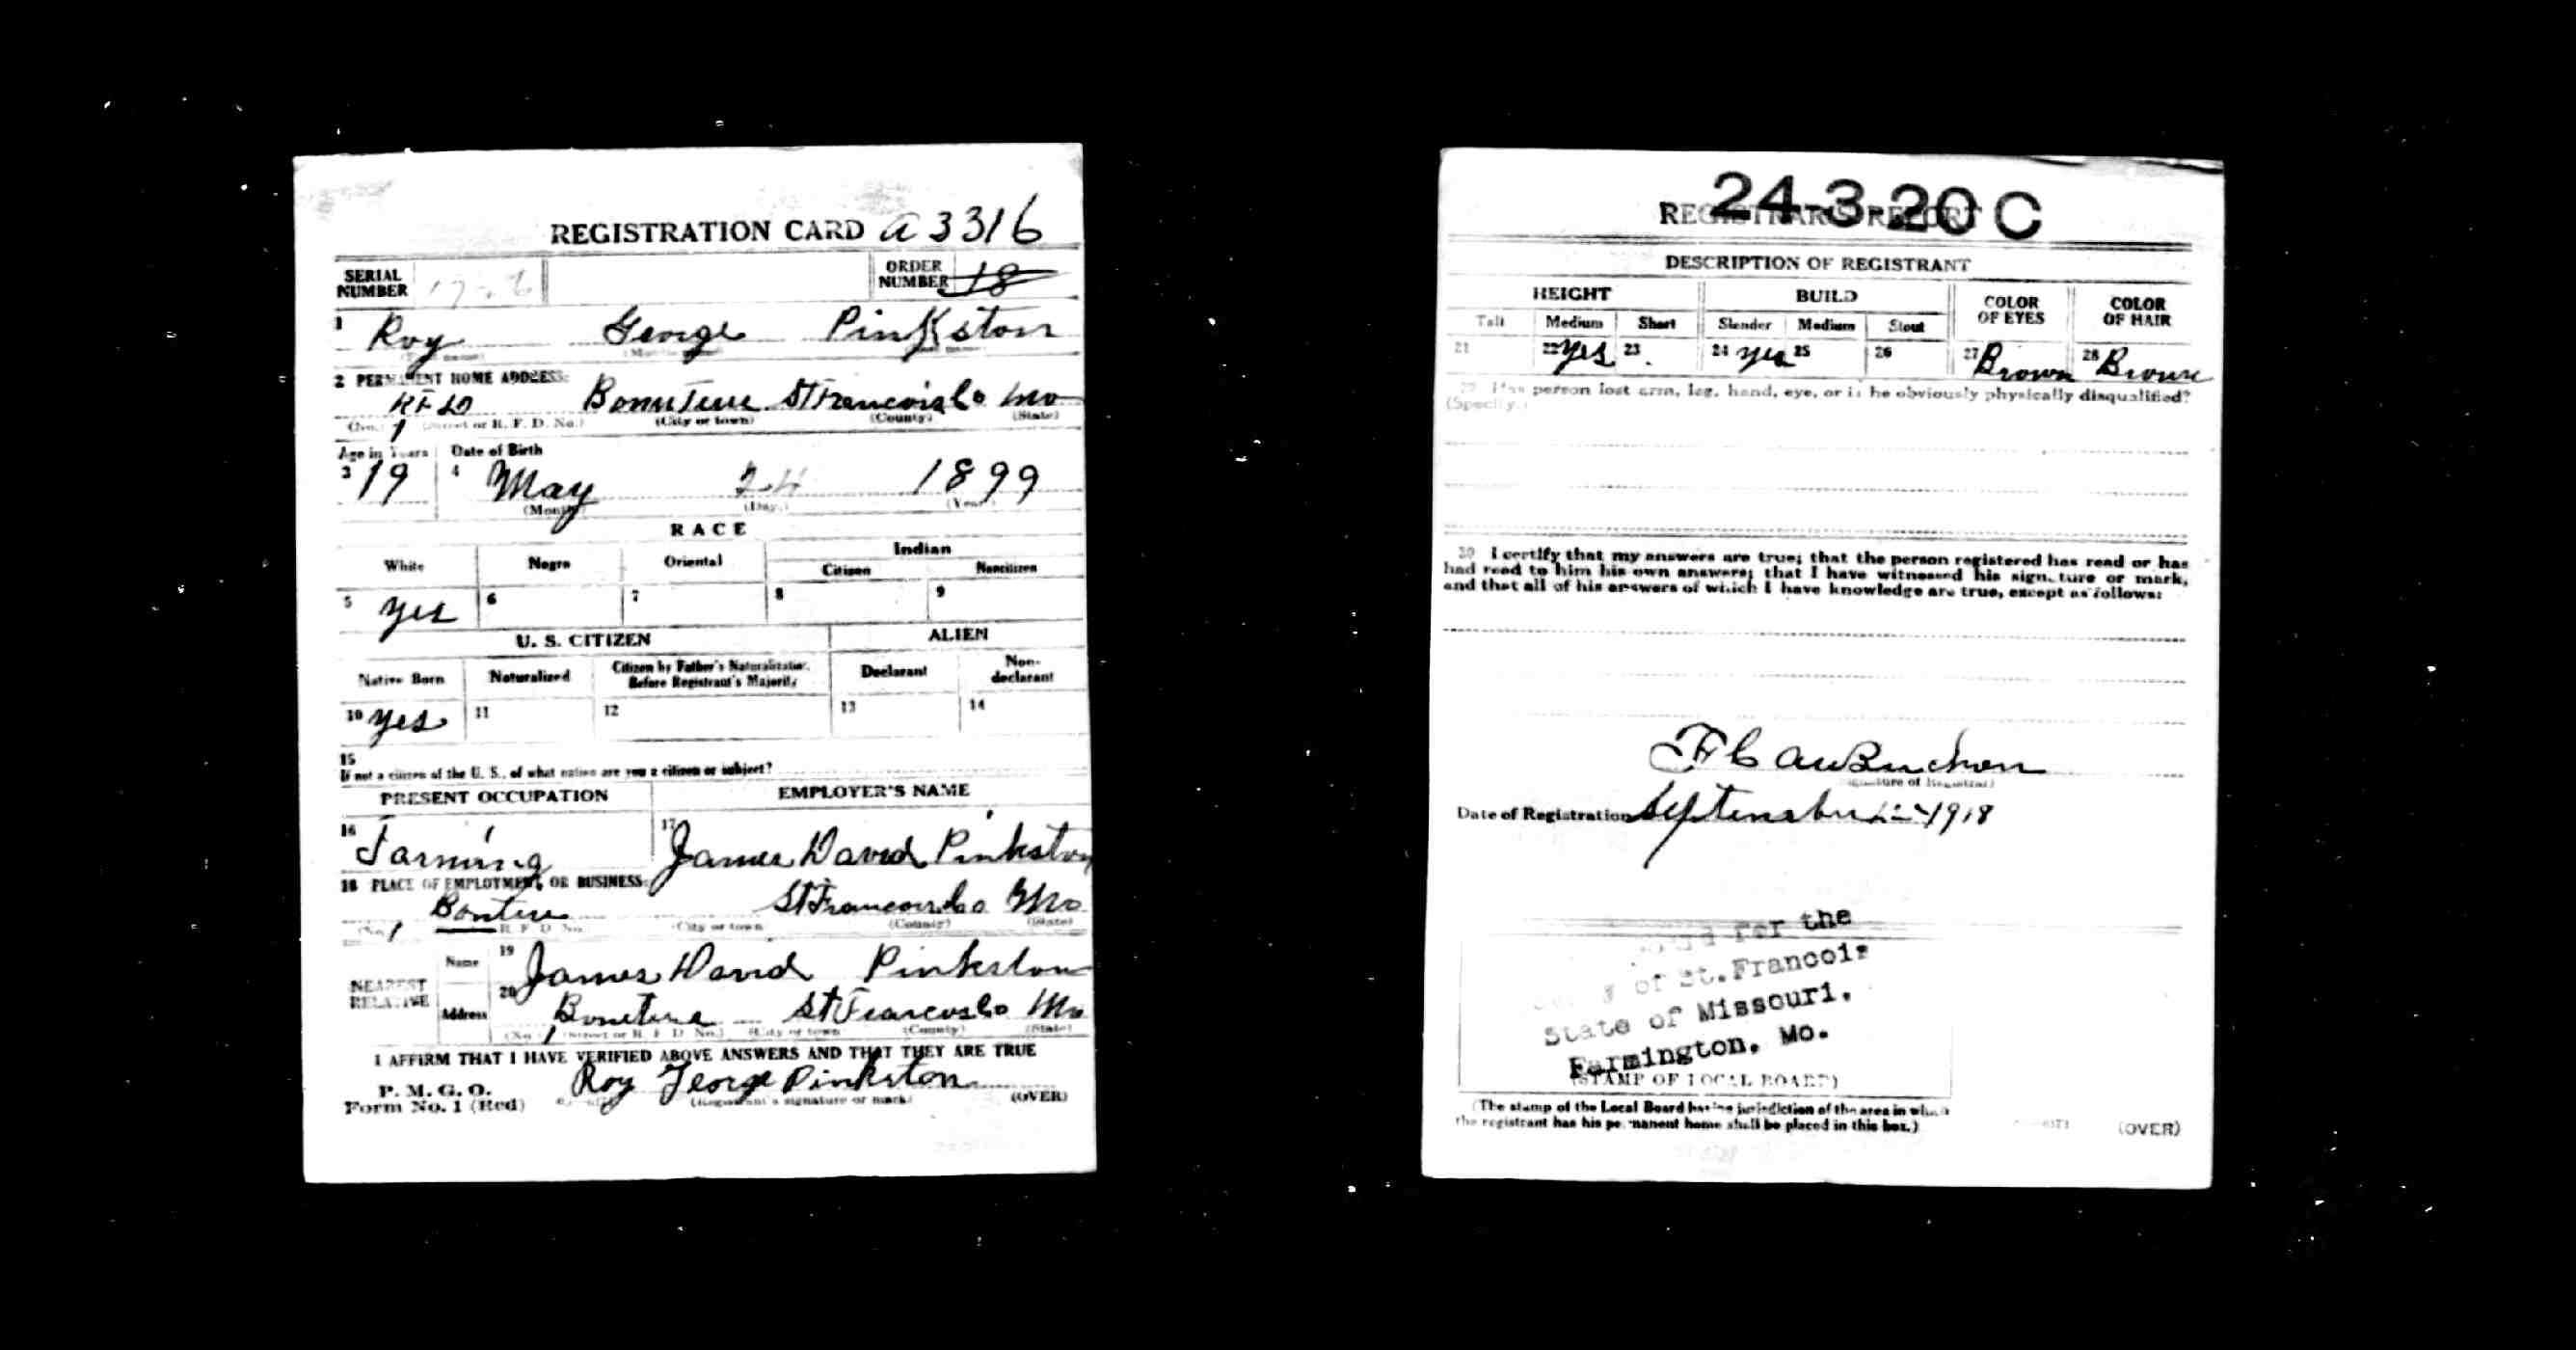 REGISTRATION CARD a 3316
SERIAL NUMBER
ORDER NUMBER 18
1 Roy George Pinkston
2 PERMANENT HOME ADDRESS:
RFD Bonneterre St Francois Co Mo
(No.) 1 (Street or R. F. D. No.) (City or town) (County) (State)
Age in Years Date of Birth
3 19 4 May 24 1899
(Month) (Day.) (Year)
RACE
White Negro Oriental Indian
Citizen Noncitizen
5 yes 6 7 8 9
U. S. CITIZEN ALIEN
Native Born Naturalized Citizen by Father's Naturalization Before Registrant's Majority Declarant Non-declarant
10 yes 11 12 13 14
15
If not a citizen of the U. S., of what nation are you a citizen or subject?
PRESENT OCCUPATION EMPLOYER'S NAME
16 Farming 17 James David Pinkston
18 PLACE OF EMPLOYMENT OR BUSINESS:
St Francois Co Mo
(No.) 1 R. F. D. No. (City or town (County) (State)
NEAREST RELATIVE
Name 19 James David Pinkston
Address 20 St Francois Co Mo
(No.) 1 (Street or R. F. D. No.) (City or town) (County) (State)
I AFFIRM THAT I HAVE VERIFIED ABOVE ANSWERS AND THAT THEY ARE TRUE
P. M. G. O.
Form No. 1 (Red) Roy George Pinkston
(Registrant's signature or mark) (OVER)
24-3-20 C
REGISTRAR'S REPORT
DESCRIPTION OF REGISTRANT
HEIGHT BUILD COLOR OF EYES COLOR OF HAIR
Tall Medium Short Slender Medium Stout
21 22 yes 23 24 yes 25 26 27 Brown 28 Brown
29 Has person lost arm, leg, hand, eye, or is he obviously physically disqualified?
(Specify.)
30 I certify that my answers are true; that the person registered has read or has
had read to him his own answers; that I have witnessed his signature or mark,
and that all of his answers of which I have knowledge are true, except as follows:
(Signature of Registrar)
Date of Registration September 1918
for the
of St.Francois
State of Missouri.
Farmington, Mo.
(STAMP OF LOCAL BOARD)
(The stamp of the Local Board having jurisdiction of the area in which
the registrant has his permanent home shall be placed in this box.)
(OVER)